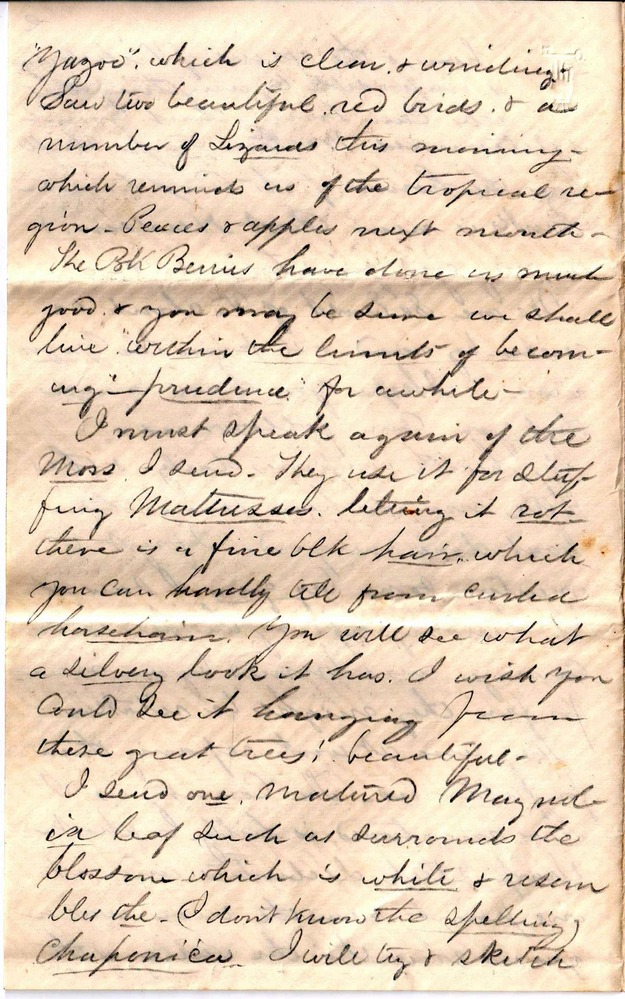 "Yazoo". which is clean. & winding &
Saw two beautiful red birds. & a
number of Lizards this morning -
which reminds us of the tropical re-
gion - Peaces & apples next month -
The Blk Berries have done us much
good. & you may be sure we shall
live "within the limits of becom-
ing" prudence" for awhile -
I must speak again of the
Moss I send - They use it for stuf-
fing Mattresses. letting it rot
there is a fine blk hair. which
you can hardly tell from curled
horsehair. You will see what
a silvery look it has. I wish you
could see it hanging from
these great trees! beautiful -
I send one matured Magnol-
ia leaf such as surrounds the
blossom which is white & resem
bles the - I dont know the spelling,
Chaponica. I will try & sketch